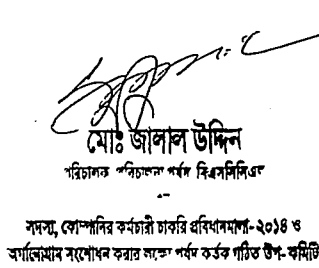 মোঃ জালাল উদ্দিন
পরিচালক পরিচালনা পর্ষদ বিএসসিসিএল
সদস্য, কোম্পানির কর্মচারী চাকরি প্রবিধানমালা-২০১৪ ও
অর্গানোগ্রাম সংশোধন করার লক্ষ্যে পর্ষদ কর্তৃক গঠিত উপ- কমিটি